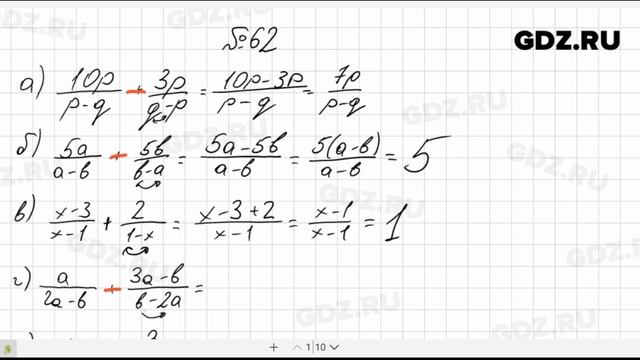 №62
GDZ.RU
а) 10p/(p-q) + 3p/(q-p) = (10p-3p)/(p-q) = 7p/(p-q)
б) 5a/(a-b) + 5b/(b-a) = (5a-5b)/(a-b) = 5(a-b)/(a-b) = 5
в) (x-3)/(x-1) + 2/(1-x) = (x-3+2)/(x-1) = (x-1)/(x-1) = 1
г) a/(2a-b) + (3a-b)/(b-2a) =
1|10